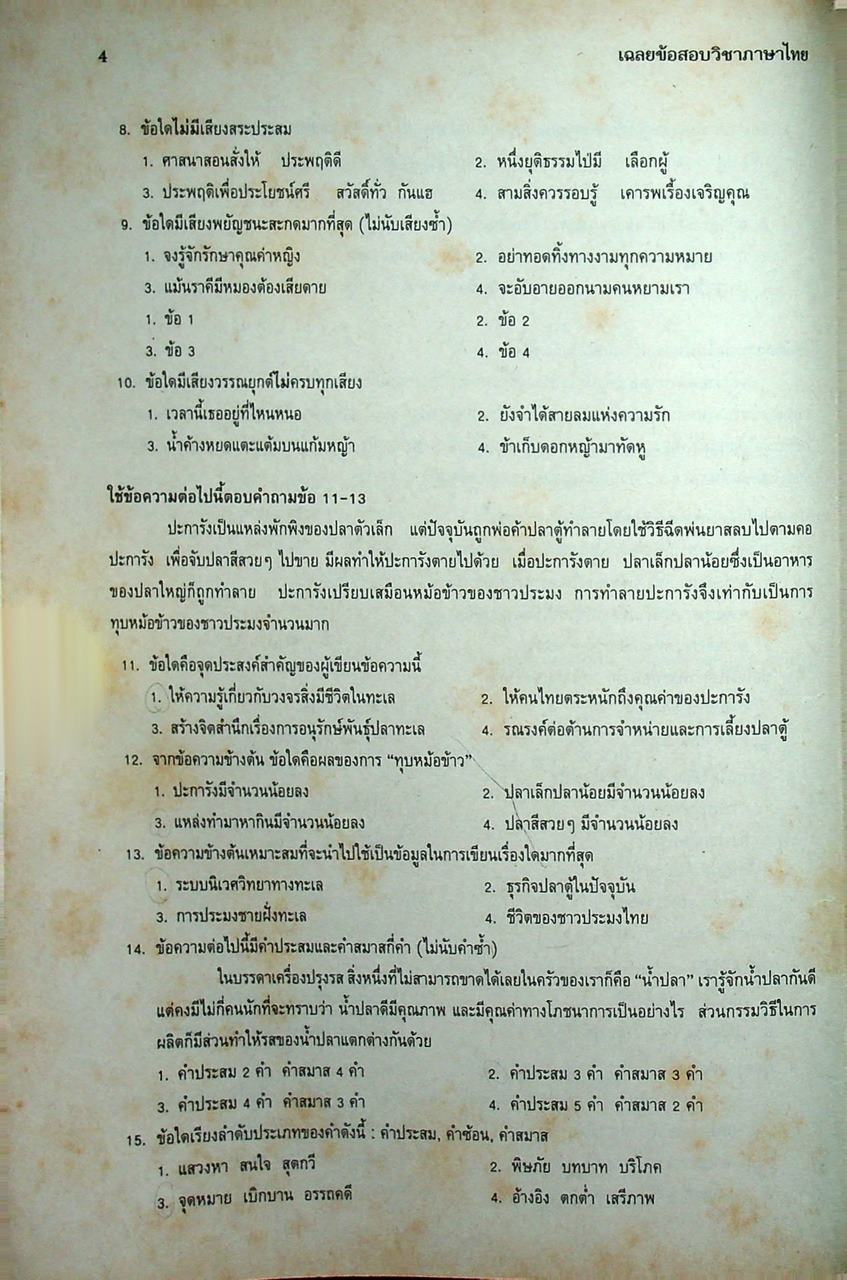 4 เฉลยข้อสอบวิชาภาษาไทย
8. ข้อใดไม่มีเสียงสระประสม
1. ศาสนาสอนสั่งให้ ประพฤติดี 2. หนึ่งยุติธรรมไป่มี เลือกผู้
3. ประพฤติเพื่อประโยชน์ศรี สวัสดิ์ทั่ว กันแฮ 4. สามสิ่งควรรอบรู้ เคารพเรื่องเจริญคุณ
9. ข้อใดมีเสียงพยัญชนะสะกดมากที่สุด (ไม่นับเสียงซ้ำ)
1. จงรู้จักรักษาคุณค่าหญิง 2. อย่าทอดทิ้งทางงามทุกความหมาย
3. แม้นราคีมีหมองต้องเสียดาย 4. จะอับอายออกนามคนหยามเรา
1. ข้อ 1 2. ข้อ 2
3. ข้อ 3 4. ข้อ 4
10. ข้อใดมีเสียงวรรณยุกต์ไม่ครบทุกเสียง
1. เวลานี้เธออยู่ที่ไหนหนอ 2. ยังจำได้สายลมแห่งความรัก
3. น้ำค้างหยดแตะแต้มบนแก้มหญ้า 4. ข้าเก็บดอกหญ้ามาทัดหู
ใช้ข้อความต่อไปนี้ตอบคำถามข้อ 11-13
ปะการังเป็นแหล่งพักพิงของปลาตัวเล็ก แต่ปัจจุบันถูกพ่อค้าปลาตู้ทำลายโดยใช้วิธีฉีดพ่นยาสลบไปตามกอ
ปะการัง เพื่อจับปลาสีสวยๆ ไปขาย มีผลทำให้ปะการังตายไปด้วย เมื่อปะการังตาย ปลาเล็กปลาน้อยซึ่งเป็นอาหาร
ของปลาใหญ่ก็ถูกทำลาย ปะการังเปรียบเสมือนหม้อข้าวของชาวประมง การทำลายปะการังจึงเท่ากับเป็นการ
ทุบหม้อข้าวของชาวประมงจำนวนมาก
11. ข้อใดคือจุดประสงค์สำคัญของผู้เขียนข้อความนี้
1. ให้ความรู้เกี่ยวกับวงจรสิ่งมีชีวิตในทะเล 2. ให้คนไทยตระหนักถึงคุณค่าของปะการัง
3. สร้างจิตสำนึกเรื่องการอนุรักษ์พันธุ์ปลาทะเล 4. รณรงค์ต่อต้านการจำหน่ายและการเลี้ยงปลาตู้
12. จากข้อความข้างต้น ข้อใดคือผลของการ “ทุบหม้อข้าว”
1. ปะการังมีจำนวนน้อยลง 2. ปลาเล็กปลาน้อยมีจำนวนน้อยลง
3. แหล่งทำมาหากินมีจำนวนน้อยลง 4. ปลาสีสวยๆ มีจำนวนน้อยลง
13. ข้อความข้างต้นเหมาะสมที่จะนำไปใช้เป็นข้อมูลในการเขียนเรื่องใดมากที่สุด
1. ระบบนิเวศวิทยาทางทะเล 2. ธุรกิจปลาตู้ในปัจจุบัน
3. การประมงชายฝั่งทะเล 4. ชีวิตของชาวประมงไทย
14. ข้อความต่อไปนี้มีคำประสมและคำสมาสกี่คำ (ไม่นับคำซ้ำ)
ในบรรดาเครื่องปรุงรส สิ่งหนึ่งที่ไม่สามารถขาดได้เลยในครัวของเราก็คือ “น้ำปลา” เรารู้จักน้ำปลากันดี
แต่คงมีไม่กี่คนนักที่จะทราบว่า น้ำปลาดีมีคุณภาพ และมีคุณค่าทางโภชนาการเป็นอย่างไร ส่วนกรรมวิธีในการ
ผลิตก็มีส่วนทำให้รสของน้ำปลาแตกต่างกันด้วย
1. คำประสม 2 คำ คำสมาส 4 คำ 2. คำประสม 3 คำ คำสมาส 3 คำ
3. คำประสม 4 คำ คำสมาส 3 คำ 4. คำประสม 5 คำ คำสมาส 2 คำ
15. ข้อใดเรียงลำดับประเภทของคำดังนี้ : คำประสม, คำซ้อน, คำสมาส
1. แสวงหา สนใจ สุตกวี 2. พิษภัย บทบาท บริโภค
3. จุดหมาย เบิกบาน อรรถคดี 4. อ้างอิง ตกต่ำ เสรีภาพ